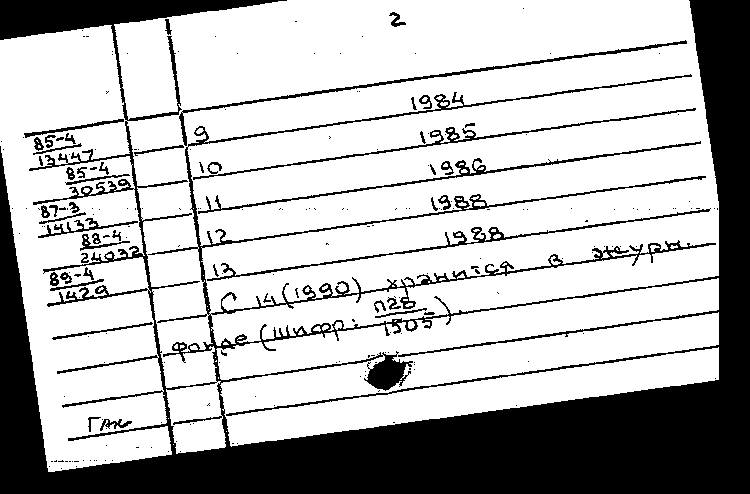 2
85-4
13447 9 1984
85-4
30539 10 1985
87-3
14133 11 1986
88-4
24032 12 1988
89-4
1429 13 1988
С 14 (1990) хранится в журн.
фонде (шифр: П28
1505).